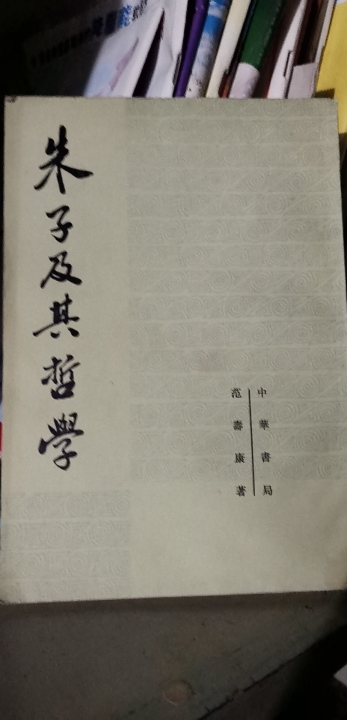 朱子及其哲學
中華書局
范壽康著